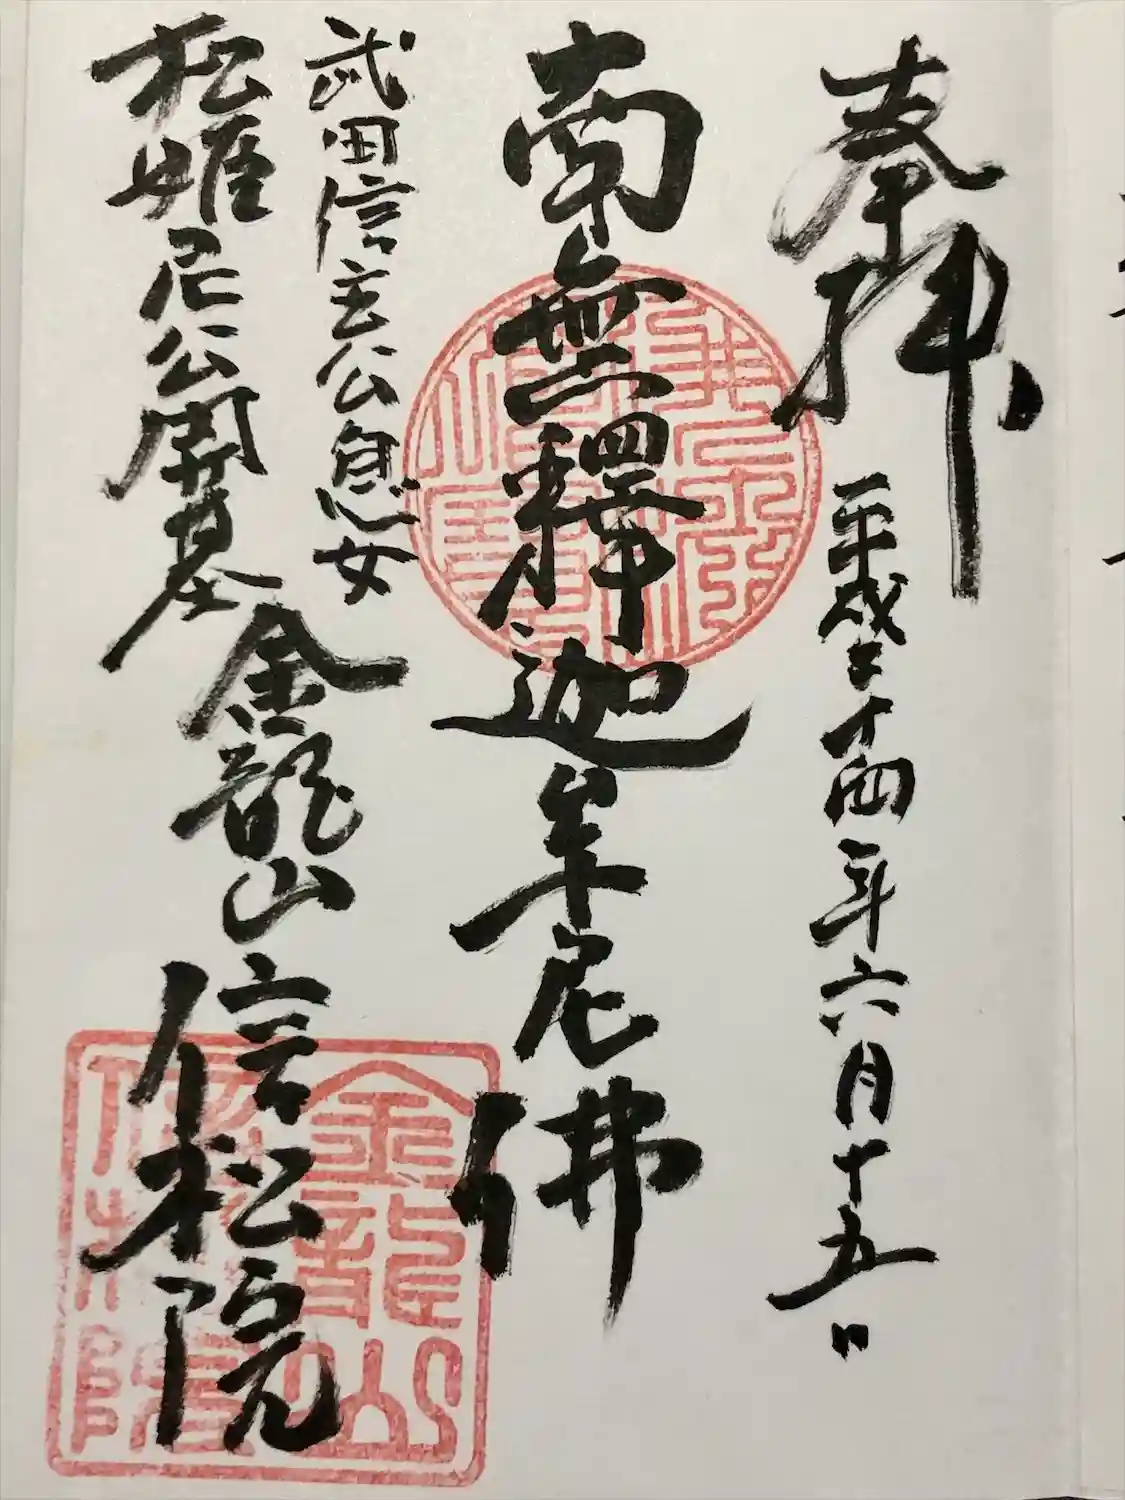 奉拝
平成二十四年六月十五日
南無釋迦牟尼佛
武田信玄公息女
松姫尼公開基
金龍山信松院
金龍山信松院